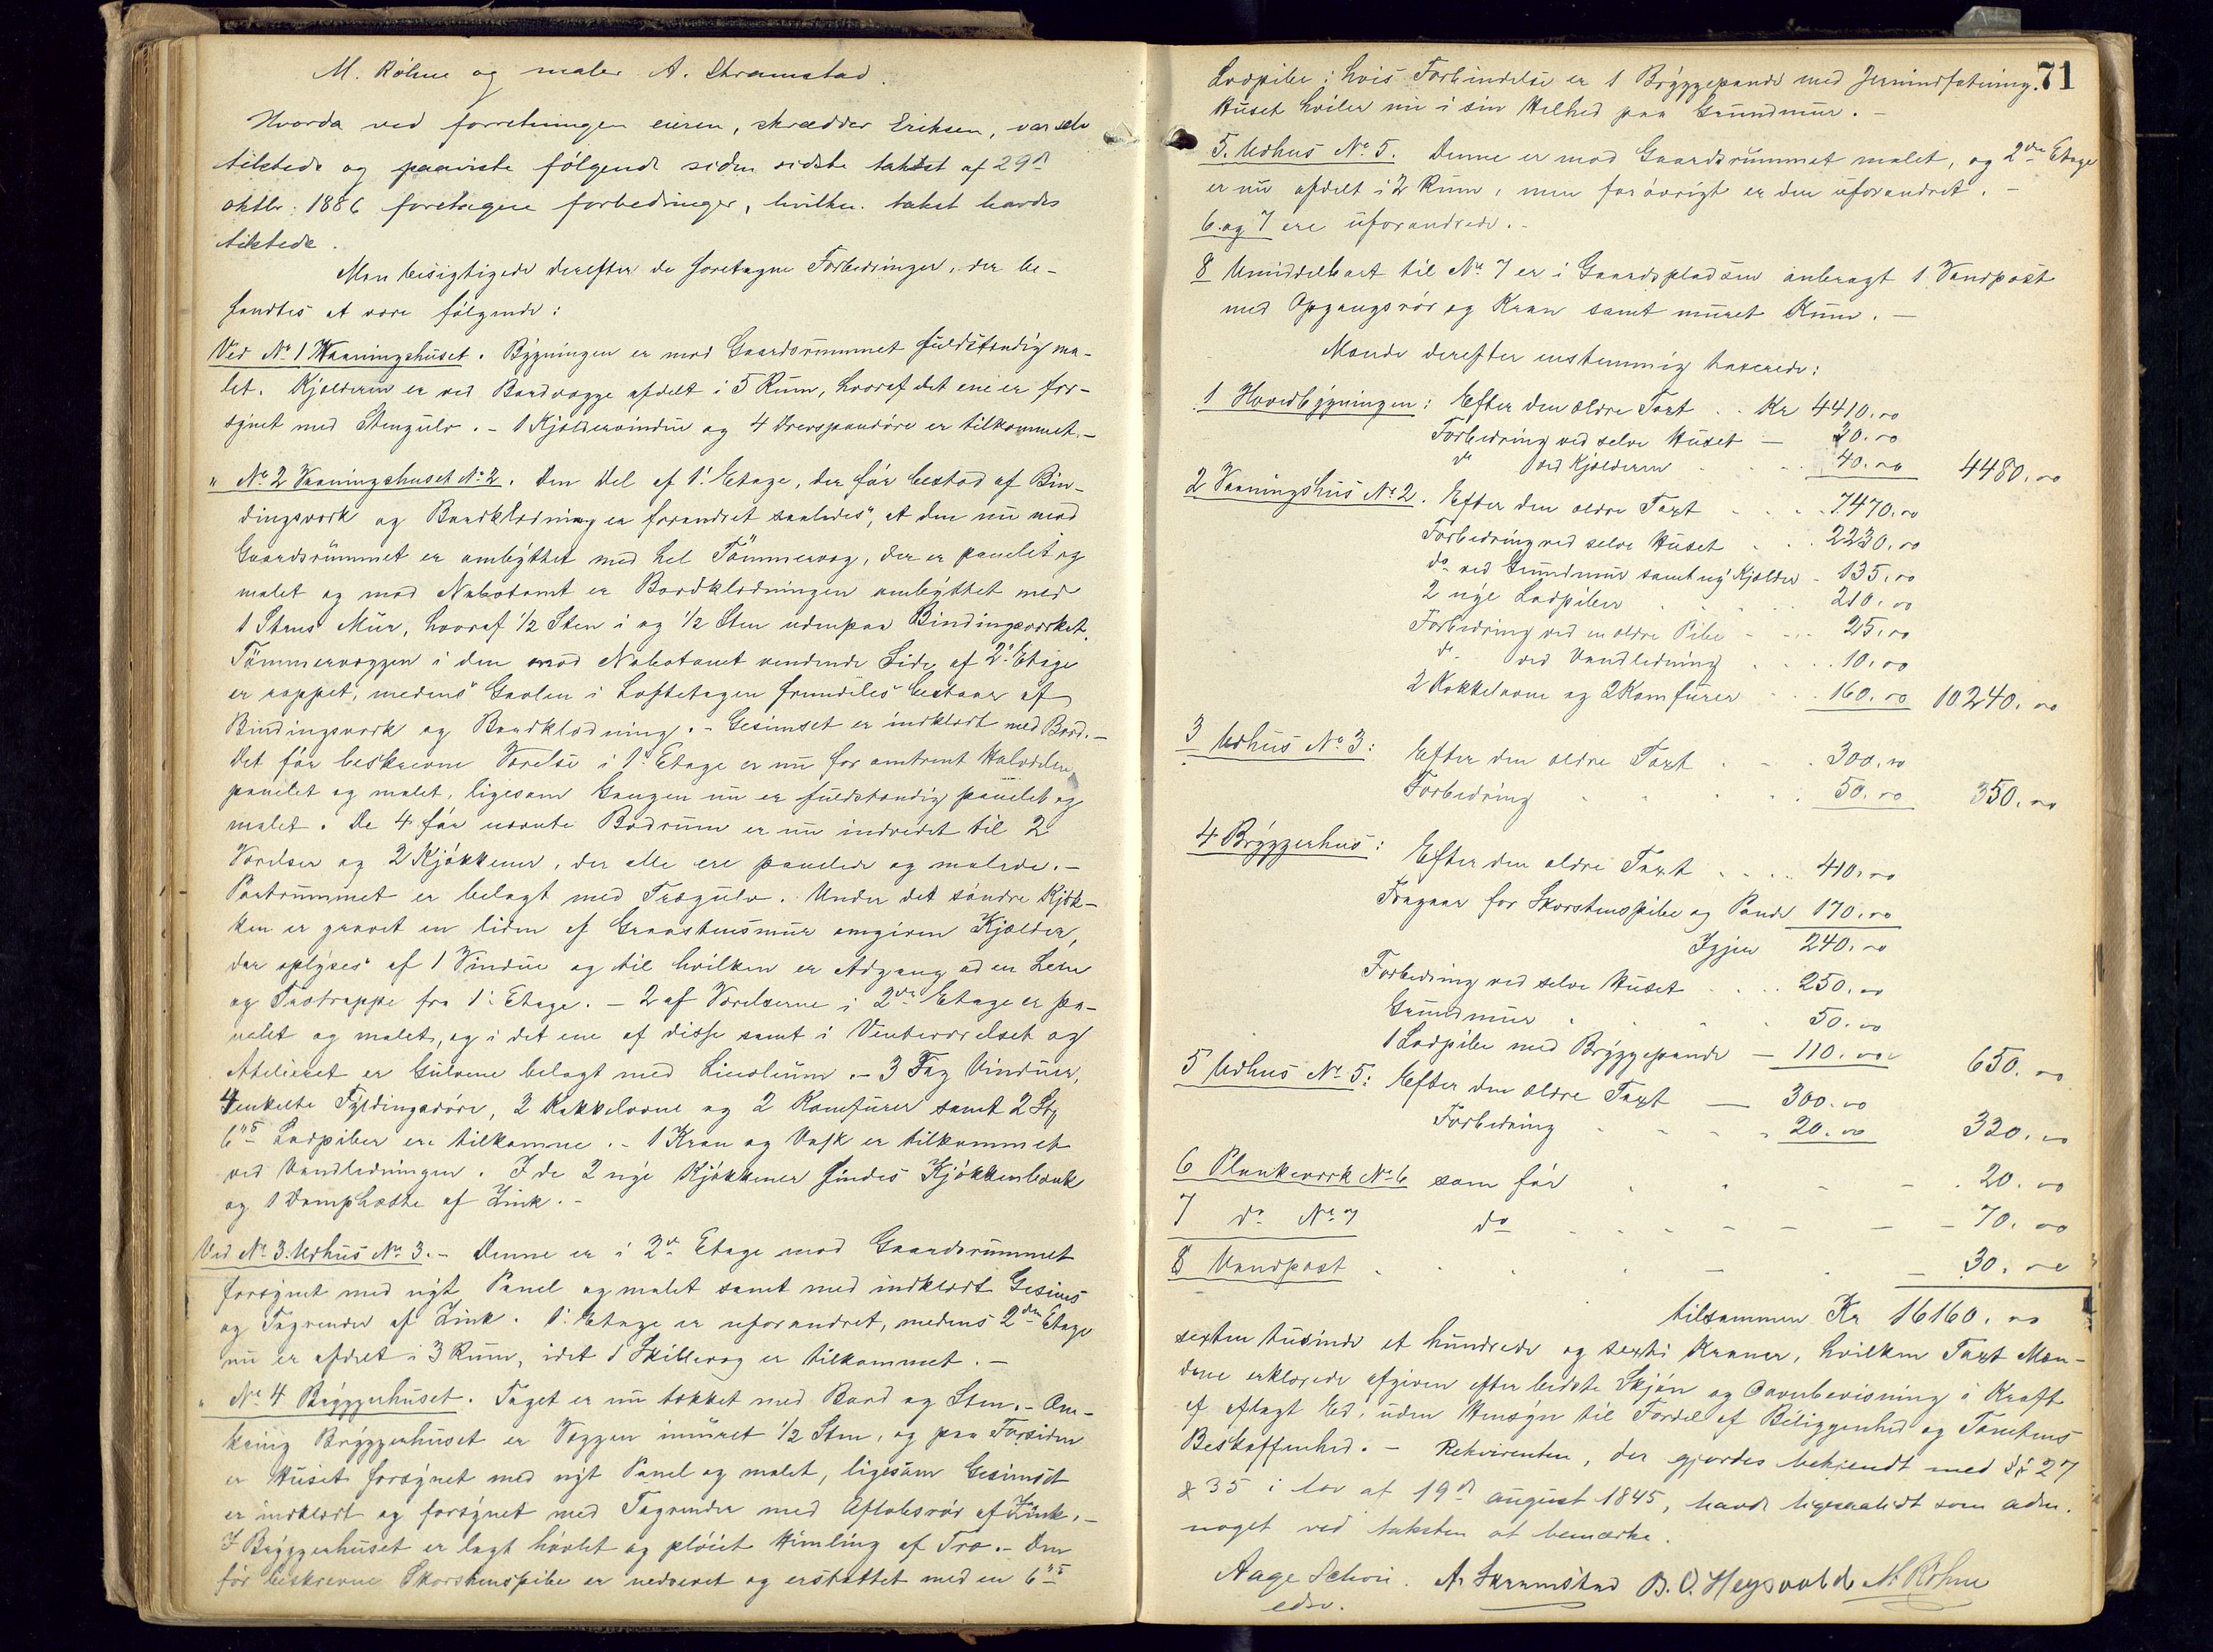 M. Röhne og maler A. Skramstad.
Hvorda ved forretningen eieren, skrædder Eriksen, var selv
tilstede og paaviste følgende siden sidste takst af 29d
oktbr. 1886 foretagne forbedringer, hvilken takst havdes
tilstede.
Man besigtigede derefter de foretagne Forbedringer, der be-
fandtes at være følgende:
Ved No 1 Vaaningshuset. Bygningen er mod Gaardsrummet fuldstændig ma-
let. Kjælderen er ved Bordvægge afdelt i 5 Rum, hvoraf det ene er for-
synet med Stengulv. - 1 Kjældervindue og 4 Drevspandøre er tilkommet. -
" No 2 Vaaningshuset No 2. Den Del af 1. Etage, der før bestod af Bin-
dingsværk og Bordklædning er forandret saaledes, at den nu mod
Gaardsrummet er ombyttet med hel Tømmervæg, der er panelet og
malet og mod Nabotomt er Bordklædningen ombyttet med
1 Stens Mur, hvoraf 1/2 Sten i og 1/2 Sten udenpaa Bindingsværket.
Tømmervæggen i den mod Nabotomt vendende Side af 2. Etage
er rappet, medens Gavlen i Loftetagen fremdeles bestaar af
Bindingsværk og Bordklædning. - Gesimset er indklædt med Bord. -
Det før beskrevne Værelse i 1. Etage er nu for omtrent Halvdelen
panelet og malet, ligesom Gangen nu er fuldstændig panelet og
malet. De 4 før nævnte Bodrum er nu indredet til 2
Værelser og 2 Kjøkkener, der alle ere panelede og malede. -
Portrummet er belagt med Trægulv. Under det søndre Kjøk-
ken er gravet en liden af Graastensmur omgiven Kjælder,
der oplyses af 1 Vindue og til hvilken er Adgang ad en Lem
og Trætrappe fra 1. Etage. - 2 af Værelserne i 2den Etage er pa-
nelet og malet, og i det ene af disse samt i Venteværelset og
Atelieret er Gulvene belagt med Linoleum. - 3 Fag Vinduer,
4 enkelte Fyldingsdøre, 2 Kakkelovne og 2 Komfurer samt 2 Stk
6"s Ladpiber ere tilkomne. - 1 Kran og Vask er tilkommet
ved Vandledningen. I de 2 nye Kjøkkener findes Kjøkkenbænk
og 1 Damphætte af Zink. -
Ved No 3. Udhus No 3. - Denne er i 2d Etage mod Gaardsrummet
forsynet med nyt Panel og malet samt med indklædt Gesims
og Tagrender af Zink. 1. Etage er uforandret, medens 2den Etage
nu er afdelt i 3 Rum, idet 1 Skillevæg er tilkommet. -
" No 4 Bryggerhuset. Taget er nu tækket med Bord og Sten. - Om-
kring Bryggerhuset er Væggen inmuret 1/2 Sten, og paa Forsiden
er Huset forsynet med nyt Panel og malet, ligesom Gesimset
er indklædt og forsynet med Tagrender med Afløbsrør af Zink. -
I Bryggerhuset er lagt høvlet og pløiet Himling af Træ. - Den
før beskrevne Skorstenspibe er nedrevet og erstattet med en 6"s
71
Ladpibe i hvis Forbindelse er 1 Bryggepande med Jernindfatning.
Huset hviler nu i sin Helhed paa Grundmur. -
5. Udhus No 5. Denne er mod Gaardsrummet malet, og 2den Etage
er nu afdelt i 2 Rum, men forøvrigt er den uforandret. -
6. og 7 ere uforandrede. -
8 Umiddelbart til No 7 er i Gaardspladsen anbragt 1 Vandpost
med Opgangsrør og Kran samt muret Kum. -
Mænde derefter enstemmig taxerede:
1 Hovedbygningen: Efter den ældre Taxt . . Kr 4410.00
Forbedring ved selve Huset — 30.00
do ved Kjælderen . . . 40.00 4480.00
2 Vaaningshus No 2. Efter den ældre Taxt . . . 7470.00
Forbedring ved selve Huset . . . 2230.00
do ved Grundmur samt ny Kjælder - 135.00
2 nye Ladpiber . . . 210.00
Forbedring ved en ældre Pibe . . . 25.00
do ved Vandledning . . . 10.00
2 Kakkelovne og 2 Komfurer . . . 160.00 10240.00
3 Udhus No 3: Efter den ældre Taxt . . . 300.00
Forbedring . . . 50.00 350.00
4 Bryggerhus: Efter den ældre Taxt . . . 410.00
Fragaar for Skorstenspibe og Pande 170.00
Igjen 240.00
Forbedring ved selve Huset . . . 250.00
Grundmur . . . 50.00
1 Ladpibe med Bryggepande — 110.00 650.00
5 Udhus No 5: Efter den ældre Taxt — 300.00
Forbedring . . . 20.00 320.00
6 Plankeværk No 6 som før . . . 20.00
7 do No 7 do . . . 70.00
8 Vandpost . . . 30.00
tilsammen Kr 16160.00
sexten tusinde et hundrede og sexti Kroner, hvilken Taxt Mæn-
dene erklærede afgiven efter bedste Skjøn og Overbevisning i Kraft
af aflagt Ed, uden Hensyn til Fordel af Beliggenhed og Tomtens
Beskaffenhed. - Rekvirenten, der gjordes bekjendt med §§ 27
& 35 i lov af 19d august 1845, havde ligesaalidt som adm.
noget ved taksten at bemærke.
Aage Schou. A. Skramstad B. O. Heysvolde M. Röhne
edsv.